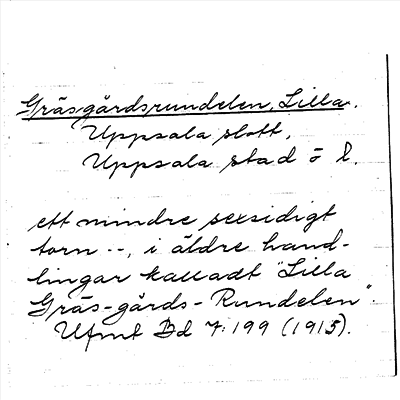 Gräsgårdsrundelen, Lilla.
Uppsala slott,
Uppsala stad o l.
ett mindre sexsidigt
torn --, i äldre hand-
lingar kalladt "Lilla
Gräs-gårds-Rundelen".
Ufmt Bd 7:199 (1915).